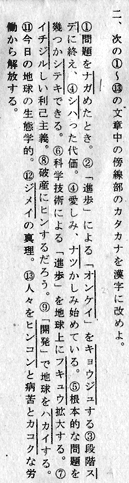 二、次の①～⑬の文章中。傍線部のカタカナを漢字に改めよ。
①問題をナガめたとき。②「進歩」による「オンケイ」をキョウジュする③段階ス
デに終え、④シハった代価。④愛しみ、ナツかしみ始めている。⑤根本的な問題を
幾つかシテキできる。⑥科学技術による「進歩」を地球上にフキュウ拡大する。⑦
イチジルしい利己主義。⑧破産にヒンするだろう。⑨「開発」で地球をハカイする。
⑪今日の地球の生態学的。⑫ジメイの真理。⑬人々をヒンコンと病苦とカコクな労
働から解放する。